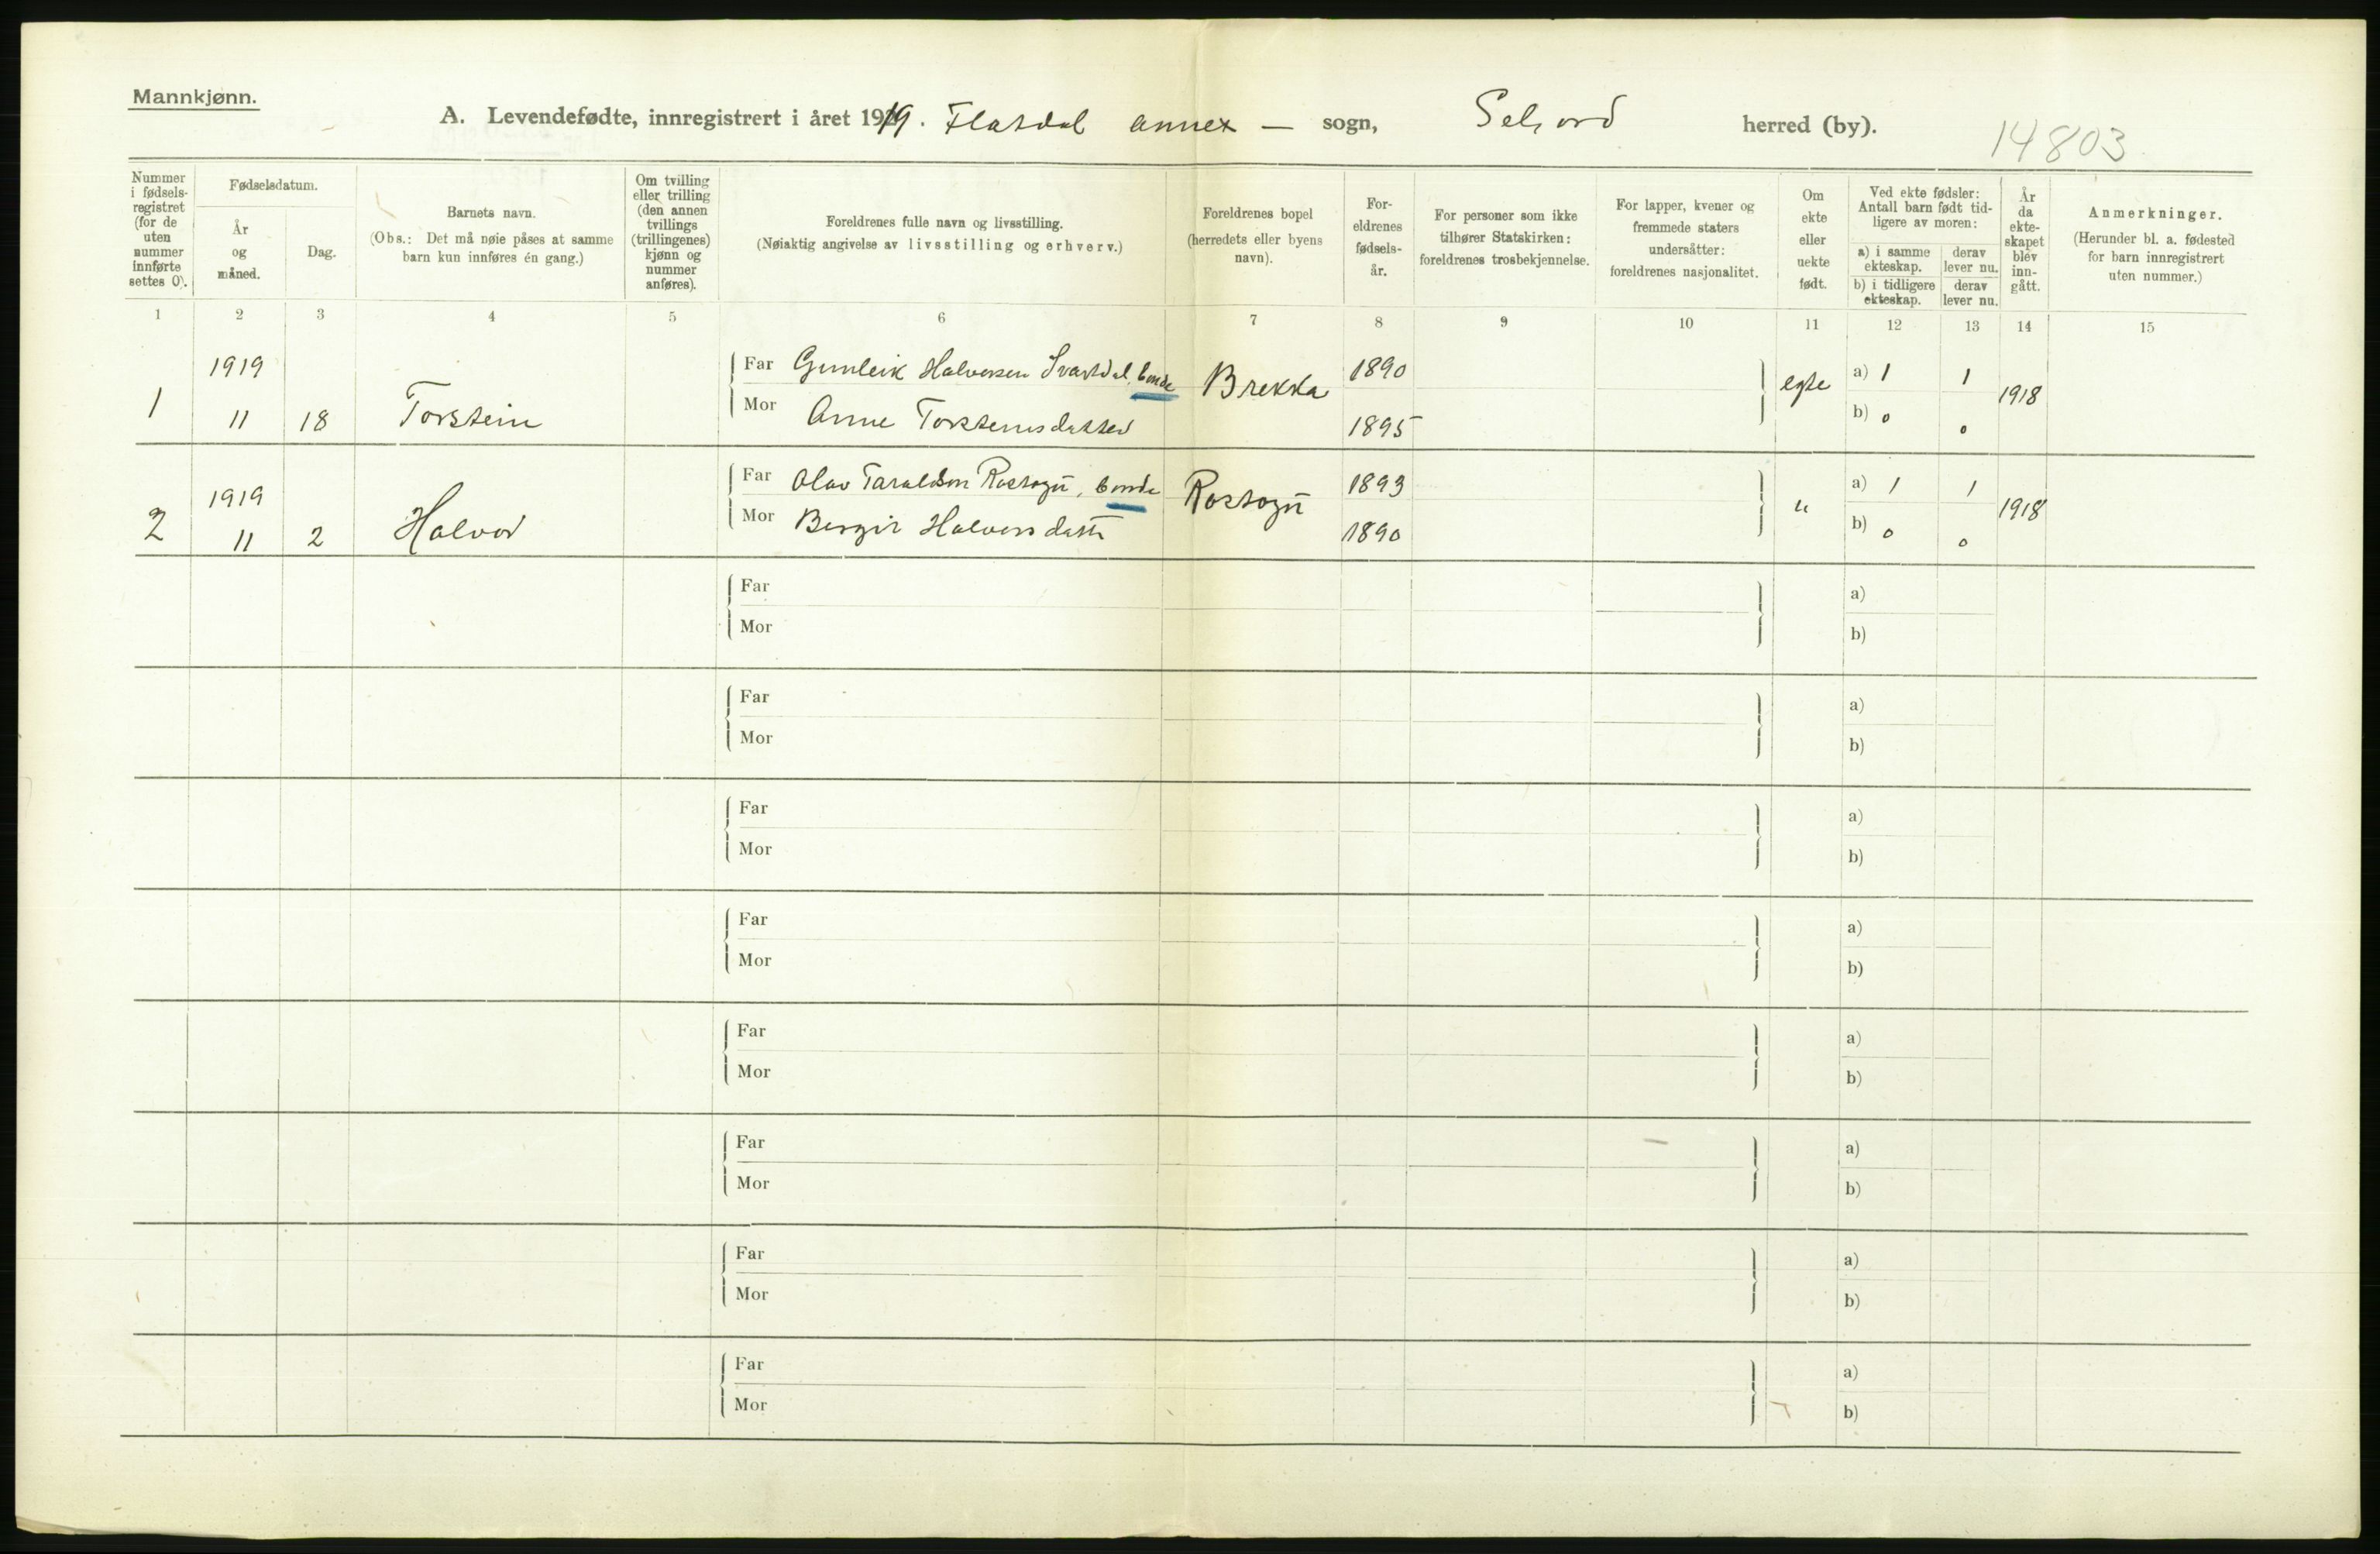 Mannkjønn.
A. Levendefødte, innregistrert i året 1919. Flatdal annex — sogn, Seljord herred (by).
14803
Nummer i fødsels-registret (for de uten nummer innførte settes 0).
Fødselsdatum.
År og måned.
Dag.
Barnets navn.
(Obs.: Det må nøie påses at samme barn kun innføres én gang.)
Om tvilling eller trilling (den annen tvillings (trillingenes) kjønn og nummer anføres).
Foreldrenes fulle navn og livsstilling.
(Nøiaktig angivelse av livsstilling og erhverv.)
Foreldrenes bopel (herredets eller byens navn).
For-eldrenes fødsels-år.
For personer som ikke tilhører Statskirken: foreldrenes trosbekjennelse.
For lapper, kvener og fremmede staters undersåtter: foreldrenes nasjonalitet.
Om ekte eller uekte født.
Ved ekte fødsler: Antall barn født tid-ligere av moren:
a) i samme ekteskap.
derav lever nu.
b) i tidligere ekteskap.
derav lever nu.
År da ekte-skapet blev inn-gått.
Anmerkninger.
(Herunder bl. a. fødested for barn innregistrert uten nummer.)
1 2 3 4 5 6 7 8 9 10 11 12 13 14 15
1 1919 11 18 Torstein
Far Gunleik Halvorsen Svartdal, bonde Brekka 1890 egte a) 1 1 1918
Mor Anne Torsteinsdatter 1895 b) 0 0
2 1919 11 2 Halvor
Far Olav Taraldson Rostogu, bonde Rostogu 1893 " a) 1 1 1918
Mor Bergit Halvorsdatter 1890 b) 0 0
Far a)
Mor b)
Far a)
Mor b)
Far a)
Mor b)
Far a)
Mor b)
Far a)
Mor b)
Far a)
Mor b)
Far a)
Mor b)
Far a)
Mor b)